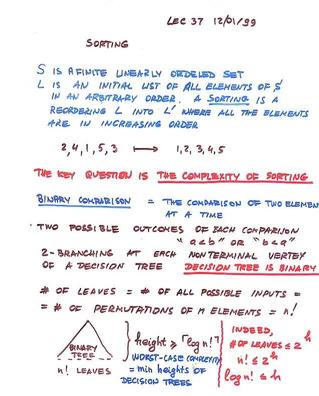 LEC 37 12/01/99
SORTING
S IS A FINITE LINEARLY ORDELED SET
L IS AN INITIAL LIST OF ALL ELEMENTS OF S
IN AN ARBITRARY ORDER. A SORTING IS A
REORDERING L INTO L' WHERE ALL THE ELEMENTS
ARE IN INCREASING ORDER
2,4,1,5,3 ⟼ 1,2,3,4,5
THE KEY QUESTION IS THE COMPLEXITY OF SORTING
BINARY COMPARISON = THE COMPARISON OF TWO ELEMEN
AT A TIME
TWO POSSIBLE OUTCOMES OF EACH COMPARISON
"a<b" OR "b<a"
2-BRANCHING AT EACH NONTERMINAL VERTEX
OF A DECISION TREE DECISION TREE IS BINARY
# OF LEAVES = # OF ALL POSSIBLE INPUTS =
= # OF PERMUTATIONS OF n ELEMENTS = n!
BINARY TREE
n! LEAVES
} height ≥ ⌈log n!⌉
WORST-CASE COMPLEXITY
= min heights OF
DECISION TREES
INDEED,
# OF LEAVES ≤ 2^h
n! ≤ 2^h
log n! ≤ h